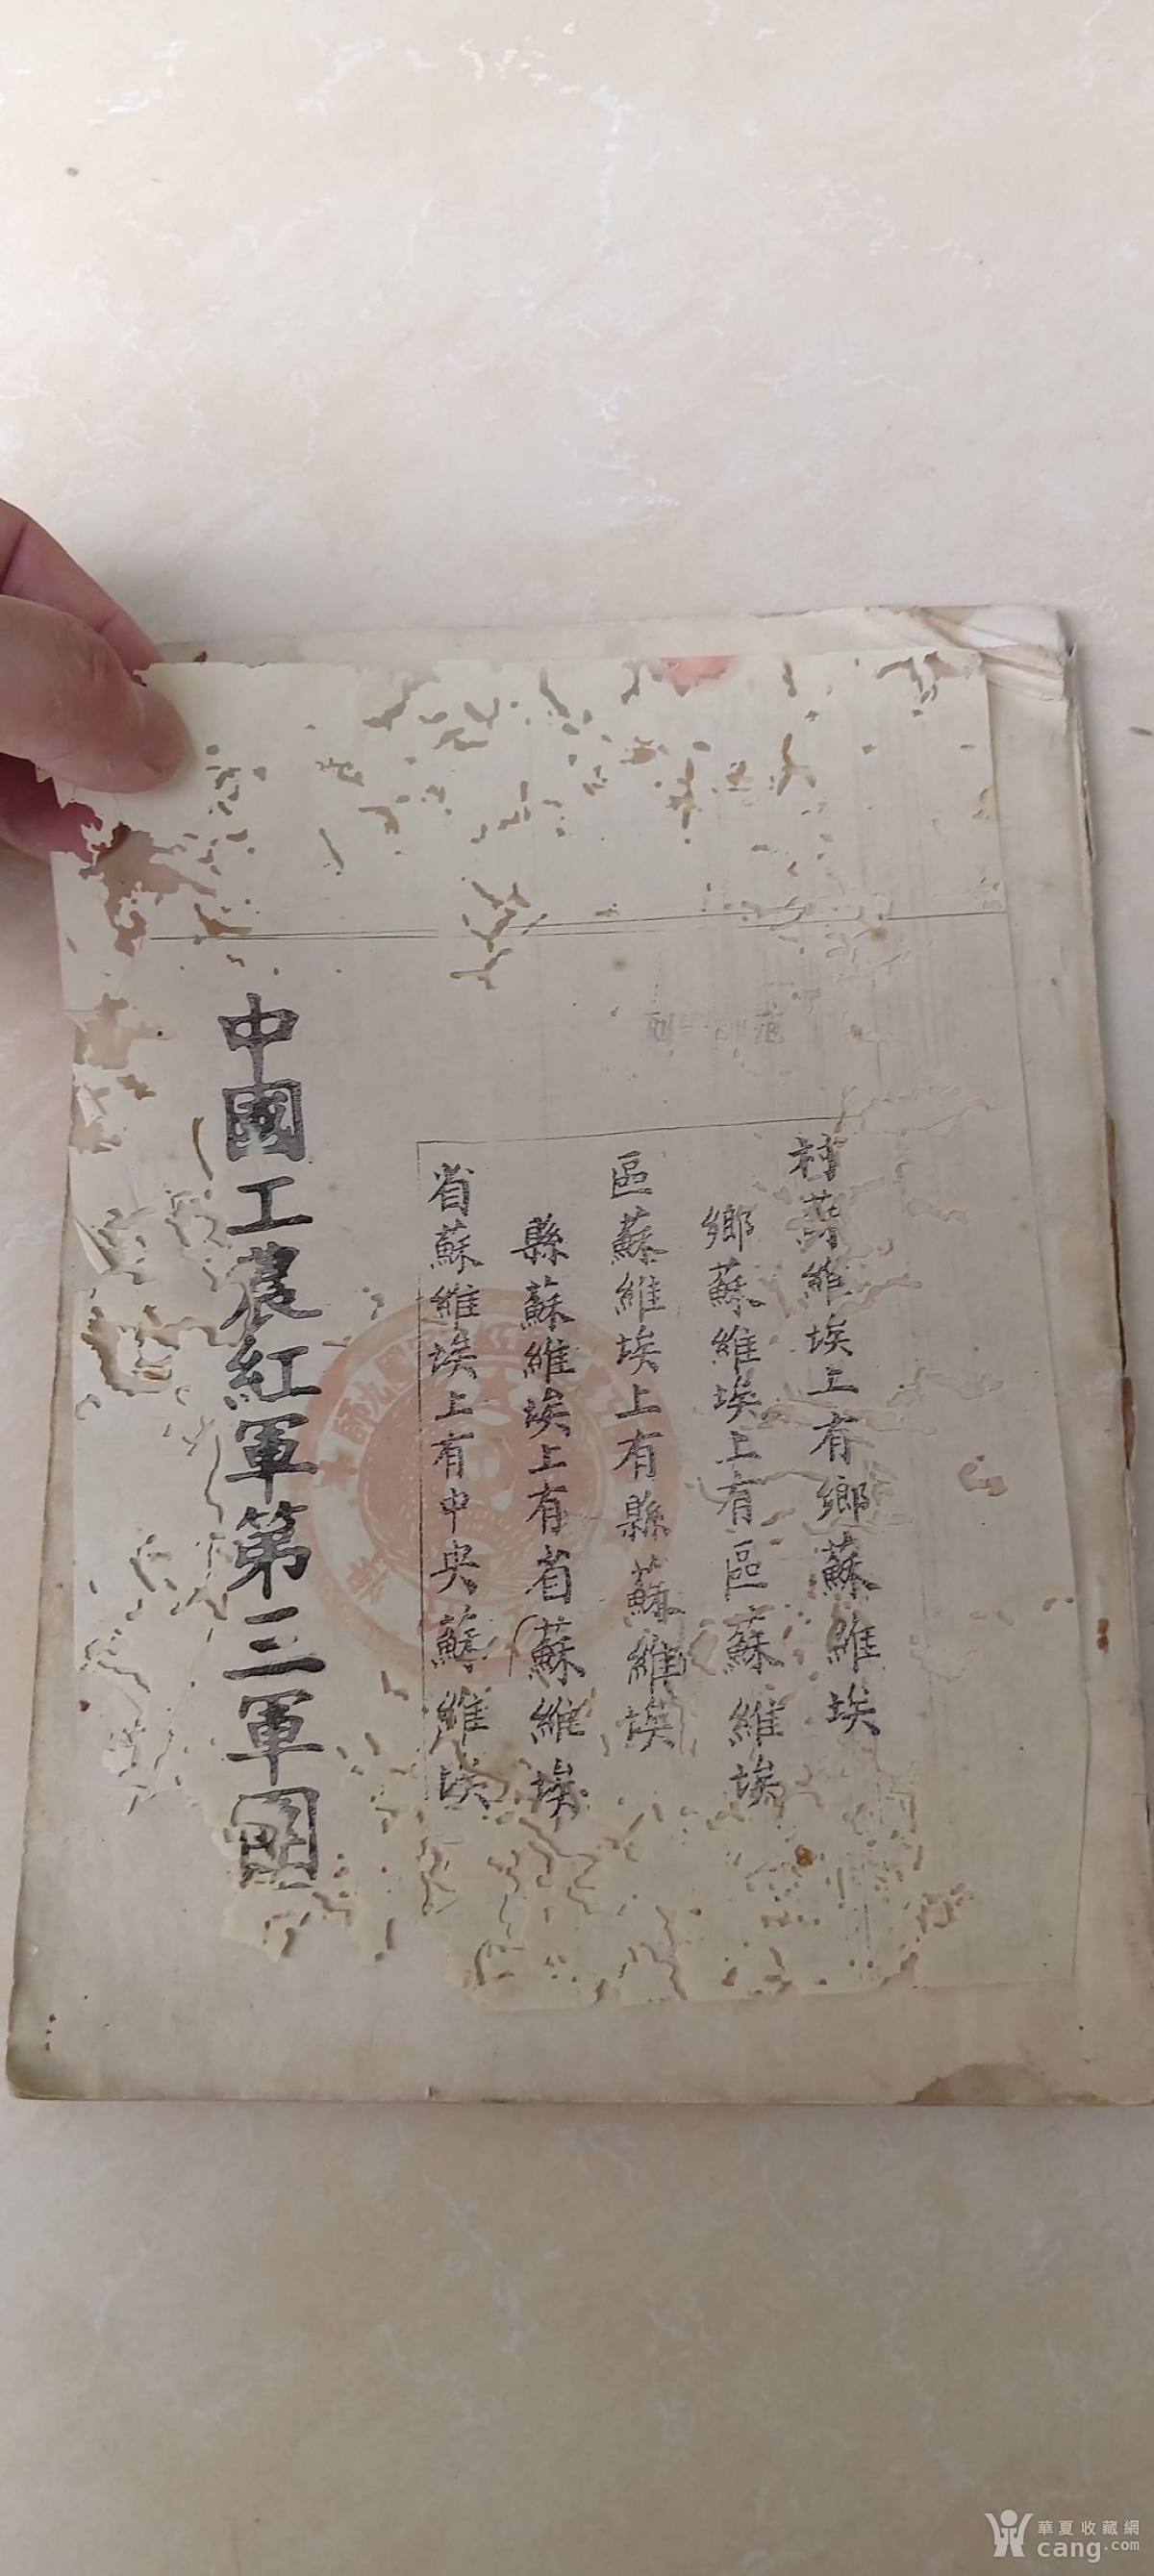 村蘇維埃上有鄉蘇維埃
鄉蘇維埃上有區蘇維埃
區蘇維埃上有縣蘇維埃
縣蘇維埃上有省蘇維埃
省蘇維埃上有中央蘇維埃
中國工農紅軍第三軍團
華夏收藏網
cang.com